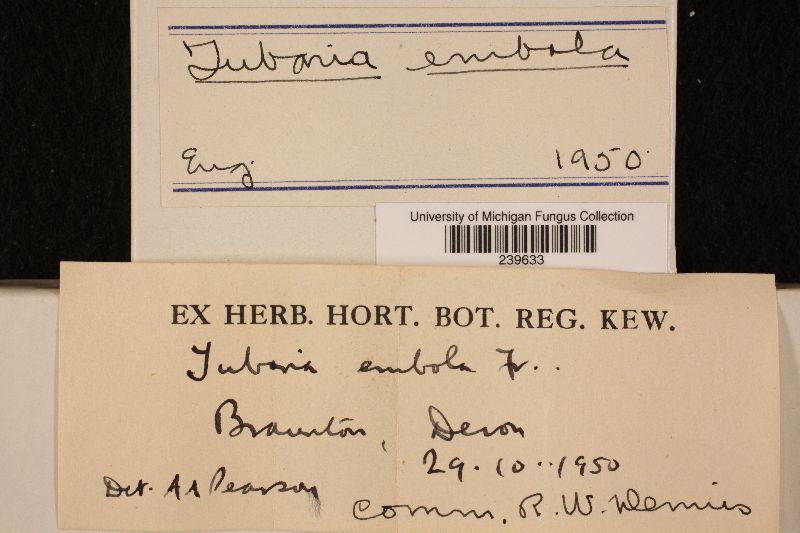 Tubaria embola
Eng 1950
University of Michigan Fungus Collection
239633
EX HERB. HORT. BOT. REG. KEW.
Tubaria embola Fr..
Braunton, Devon
29.10.1950
Det. AA Pearson
Comm. R.W. Dennis